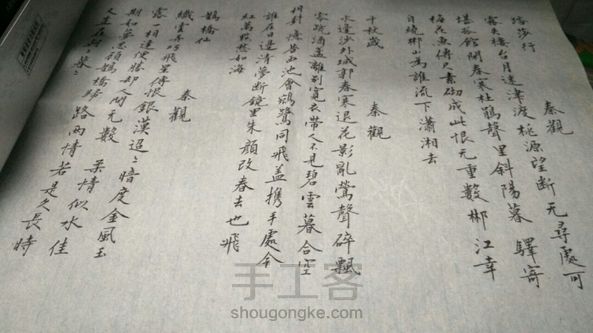 踏莎行 秦觀
霧失樓台月迷津渡桃源望斷无尋處可
堪孤館閉春寒杜鵑聲里斜陽暮 驛寄
梅花魚傳尺素砌成此恨无重數郴江幸
自繞郴山為誰流下瀟湘去
千秋歲 秦觀
水邊沙外城郭春寒退花影亂鶯聲碎飄
零疏酒盞離別寬衣帶人不見碧雲暮合空
相對 憶昔西池會鵷鷺同飛蓋携手處今
誰在日邊清夢斷鏡里朱顏改春去也飛
紅萬點愁如海
鵲橋仙 秦觀
纖雲弄巧飛星傳恨銀漢迢〻暗度金風玉
露一相逢便勝却人間无數 柔情似水佳
期如夢忍顧鵲橋歸路兩情若是久長時
又豈在朝〻暮〻
手工客
shougongke.com